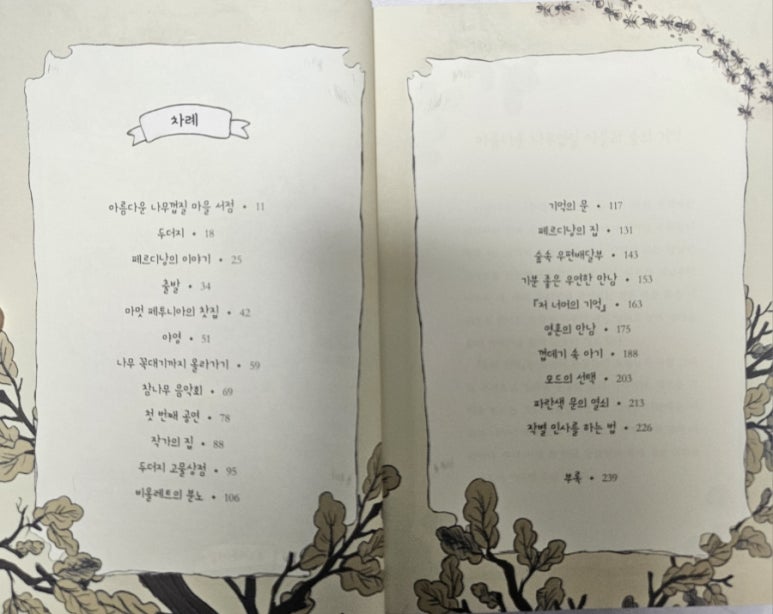 차례
아름다운 나무껍질 마을 서점 • 11
두더지 • 18
페르디낭의 이야기 • 25
출발 • 34
마멋 페투니아의 찻집 • 42
야영 • 51
나무 꼭대기까지 올라가기 • 59
참나무 음악회 • 69
첫 번째 공연 • 78
작가의 집 • 88
두더지 고물상점 • 95
비올레트의 분노 • 106
기억의 문 • 117
페르디낭의 집 • 131
숲속 우편배달부 • 143
기분 좋은 우연한 만남 • 153
『저 너머의 기억』 • 163
영혼의 만남 • 175
껍데기 속 아기 • 188
모드의 선택 • 203
파란색 문의 열쇠 • 213
작별 인사를 하는 법 • 226
부록 • 239